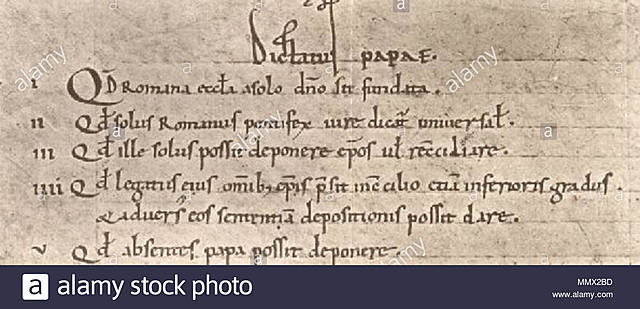 Dictatus papae.
i Qd Romana eccla a solo dno sit fundata.
ii Qd solus Romanus pontifex iure dicat universal.
iii Qd ille solus possit deponere epos ul reccliare.
iiii Qd legatus eius omib; epis psit in cclio etiam inferioris gradus.
& adversus eos sententiam depositionis possit dare.
v Qd absentes papa possit deponere.
alamy stock photo
MMX2BD
www.alamy.com